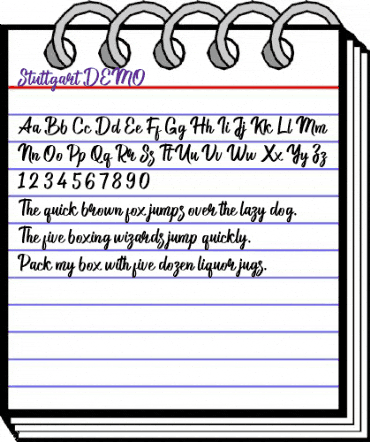 Stuttgart DEMO
Aa Bb Cc Dd Ee Ff Gg Hh Ii Jj Kk Ll Mm
Nn Oo Pp Qq Rr Ss Tt Uu Vv Ww Xx Yy Zz
1 2 3 4 5 6 7 8 9 0
The quick brown fox jumps over the lazy dog.
The five boxing wizards jump quickly.
Pack my box with five dozen liquor jugs.